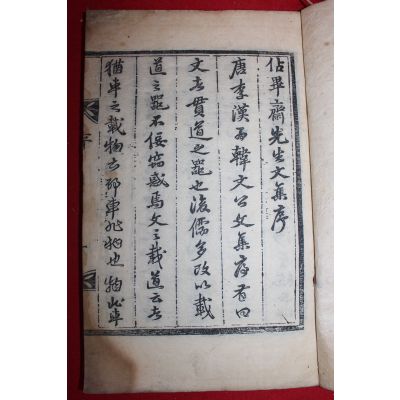 佔畢齋先生文集序
唐李漢為韓文公文集序有曰
文者貫道之器也後儒多改以載
道之器不佞竊惑焉文之載道云者
猶車之載物云耶車非物也物非車
序